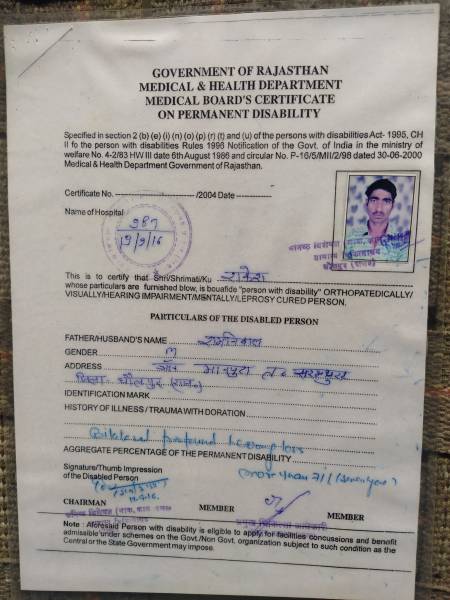 GOVERNMENT OF RAJASTHAN
MEDICAL & HEALTH DEPARTMENT
MEDICAL BOARD'S CERTIFICATE
ON PERMANENT DISABILITY
Specified in section 2 (b) (e) (i) (n) (o) (p) (r) (t) and (u) of the persons with disabilities Act- 1995, CH
II fo the person with disabilities Rules 1996 Notification of the Govt. of India in the ministry of
welfare No. 4-2/83 HW III date 6th August 1986 and circular No. P-16/5/MII/2/98 dated 30-06-2000
Medical & Health Department Government of Rajasthan.
Certificate No. /2004 Date
Name of Hospital
987
19/9/16
This is to certify that Shri/Shrimati/Ku राकेश
whose particulars are furnished blow, is bouafide "person with disability" ORTHOPATEDICALLY/
VISUALLY/HEARING IMPAIRMENT/MENTALLY/LEPROSY CURED PERSON.
PARTICULARS OF THE DISABLED PERSON
FATHER/HUSBAND'S NAME रामनिवास
GENDER M
ADDRESS
जिला धौलपुर (राज.)
IDENTIFICATION MARK
HISTORY OF ILLNESS / TRAUMA WITH DORATION
Bilateral profound hearing loss
AGGREGATE PERCENTAGE OF THE PERMANENT DISABILITY
Signature/Thumb Impression
of the Disabled Person
CHAIRMAN MEMBER MEMBER
Note : Aforesaid Person with disability is eligible to apply for facilities concussions and benefit
admissible under schemes on the Govt./Non Govt. organization subject to such condition as the
Central or the State Government may impose.